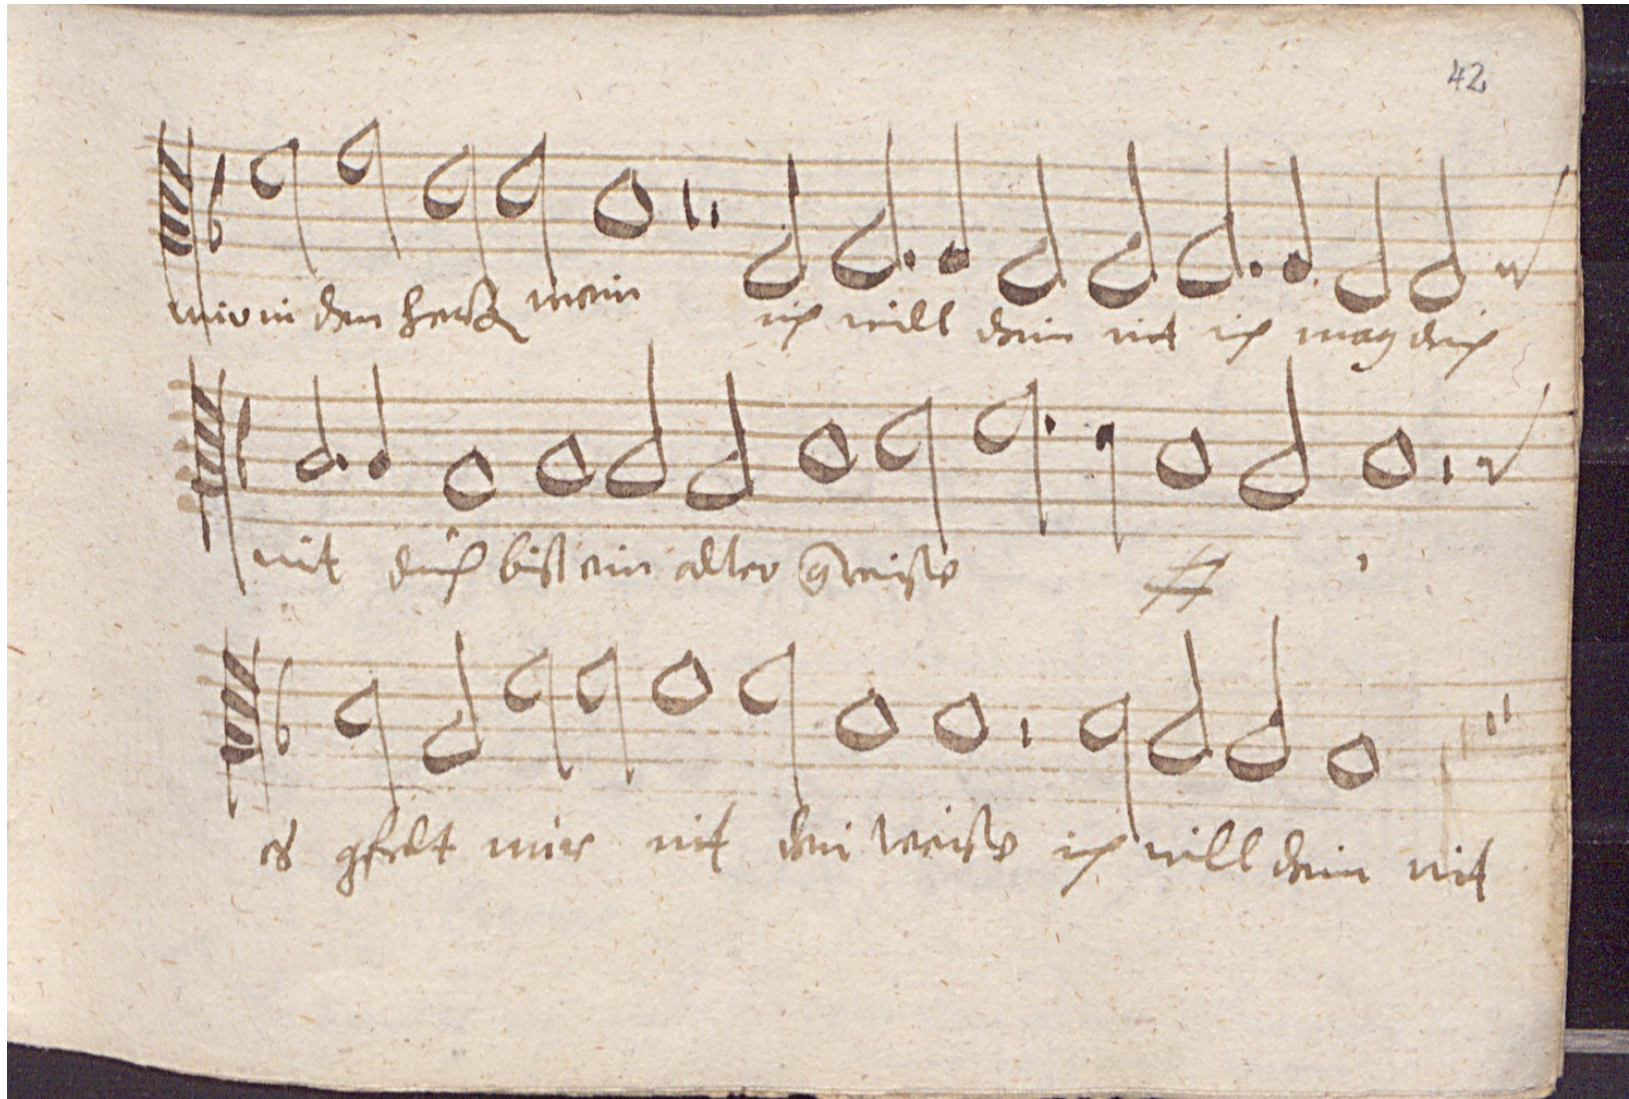 42
mir in den hertz mein ich will dein nit ich mag dich
nit duch bist ein alter greiße
es gfelt mir nit dein weiße ich will dein nit